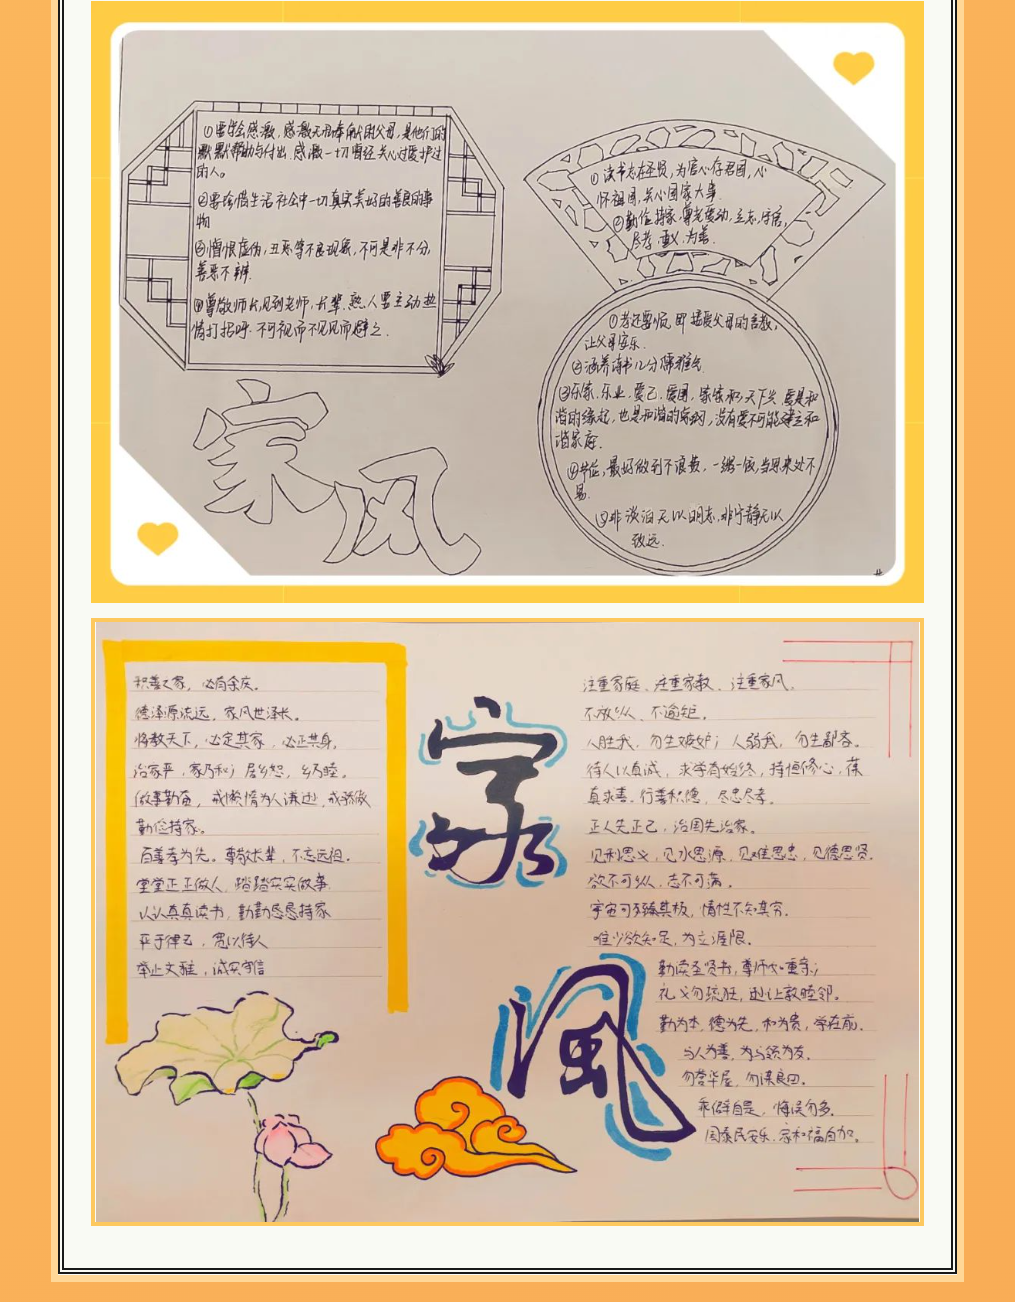 ①要学会感激,感激无私奉献的父母,是他们的
默默帮助与付出.感激一切曾经关心过爱护过
的人。
②要珍惜生活社会中一切真实美好的善良的事
物
③憎恨虚伪,丑恶等不良现象,不可是非不分,
善恶不辨.
④尊敬师长,见到老师,长辈.熟人要主动热
情打招呼.不可视而不见见而避之.
家风
①读书志在圣贤,为官心存君国,心
怀祖国,关心国家大事
②勤俭持家.尊老爱幼,立志,守信,
尽孝.重义,为善.
让父母安乐.
③乐家.乐业.爱己.爱国,家家和,天下兴.爱是和
谐的缘起,也是和谐的,没有爱不可能建立和
谐家庭.
④节俭,最好做到不浪费,一粥一饭,当思来处不
易.
⑤非淡泊无以明志,非宁静无以
致远.
积善之家,必有余庆。
德泽源流远,家风世泽长。
将教天下,必定其家,必正其身,
治家严,家乃和;居乡恕,乡乃睦。
做事勤奋,戒懒惰为人谦逊,戒骄傲
勤俭持家。
百善孝为先。尊敬长辈,不忘远祖.
堂堂正正做人,踏踏实实做事.
认认真真读书,勤勤恳恳持家
严于律己,宽以待人
举止文雅,诚实守信
家
風
注重家庭、注重家教、注重家风,
不放纵、不逾矩。
人胜我,勿生嫉妒;人弱我,勿生鄙吝。
待人以真诚,求学有始终,持恒修心,葆
真求善.行善积德,尽忠尽孝。
正人先正己,治国先治家。
见利思义,见水思源,见难思忠,见德思贤.
欲不可纵,志不可满。
宇宙可臻其极,情性不知其穷.
唯少欲知足,为立涯限.
勤读圣贤书,尊师如重亲;
礼义勿疏狂,逊让敦睦邻。
勤为本,德为先,和为贵,学在前.
与人为善,为与
勿营华屋,勿谋良田。
乖僻自是,悔误勿多.
国泰民安乐,家和福自加。